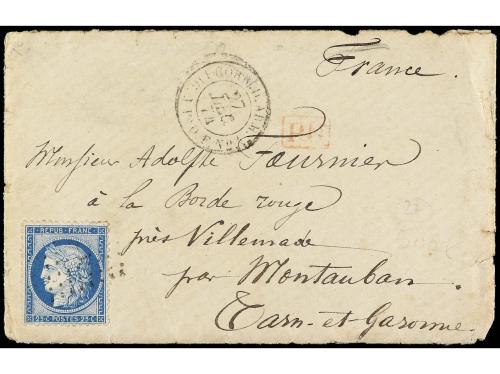 France.
27
74
PD
Monsieur Adolphe Fournier
à la Borde rouge
près Villemade
par Montauban.
Tarn-et-Garonne.
REPUB · FRANC ·
25 · C · POSTES · 25 · C